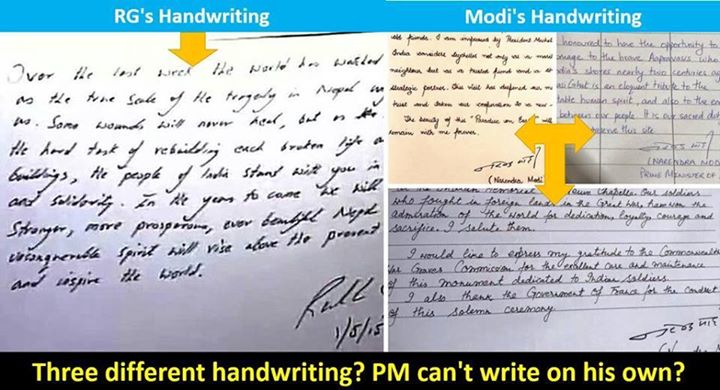 RG's Handwriting
Modi's Handwriting
Over the last week the world has watched
as the true scale of the tragedy in Nepal
us. Some wounds will never heal, but as
the hard task of rebuilding each broken life &
buildings, the people of India stand with you in
and solidarity. In the years to come we will
Stronger, more prosperous, ever beautiful Nepal
unconquerable spirit will rise above the present
and inspire the world.
1/5/15
old friends. I am impressed by President Michel
India considers Seychelles not only as a
neighbour but as a trusted friend and a
strategic partner. Our visit has defined our
trust and our cooperation to a new
The beauty of this "Paradise on
remain with me forever.
(Narendra Modi
honoured to have the opportunity to
homage to the brave Aapravasis who
India's shores nearly two centuries
Ghat is an eloquent tribute to the
human spirit, and also to the
between our people. It is our sacred
preserve this site
(NARENDRA MODI
PRIME MINISTER OF
Chapelle. Our soldiers
who fought in foreign land in the Great War, have won the
admiration of the World for dedication, loyalty, courage and
sacrifice. I salute them.
I would like to express my gratitude to the Commonwealth
War Graves Commission for the excellent care and maintenance
of this monument dedicated to Indian Soldiers.
I also thank the Government of France for the conduct
of this solemn ceremony
Three different handwriting? PM can't write on his own?